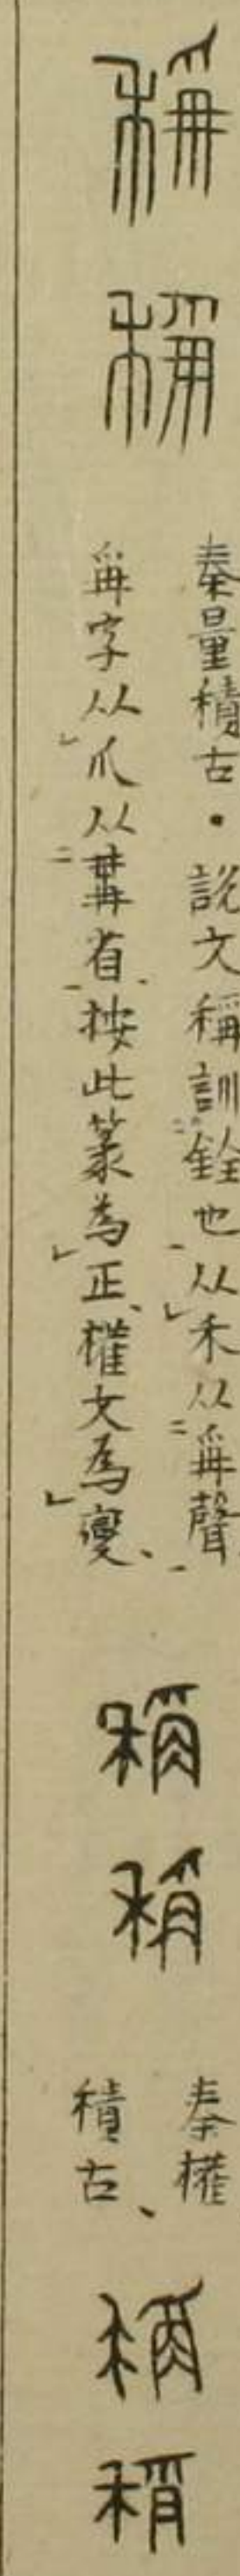 稱 稱
秦量積古・説文稱訓銓也从禾从爯聲
爯字从爪从冓省按此篆為正權文為變
稱 稱
秦權
積古
稱 稱